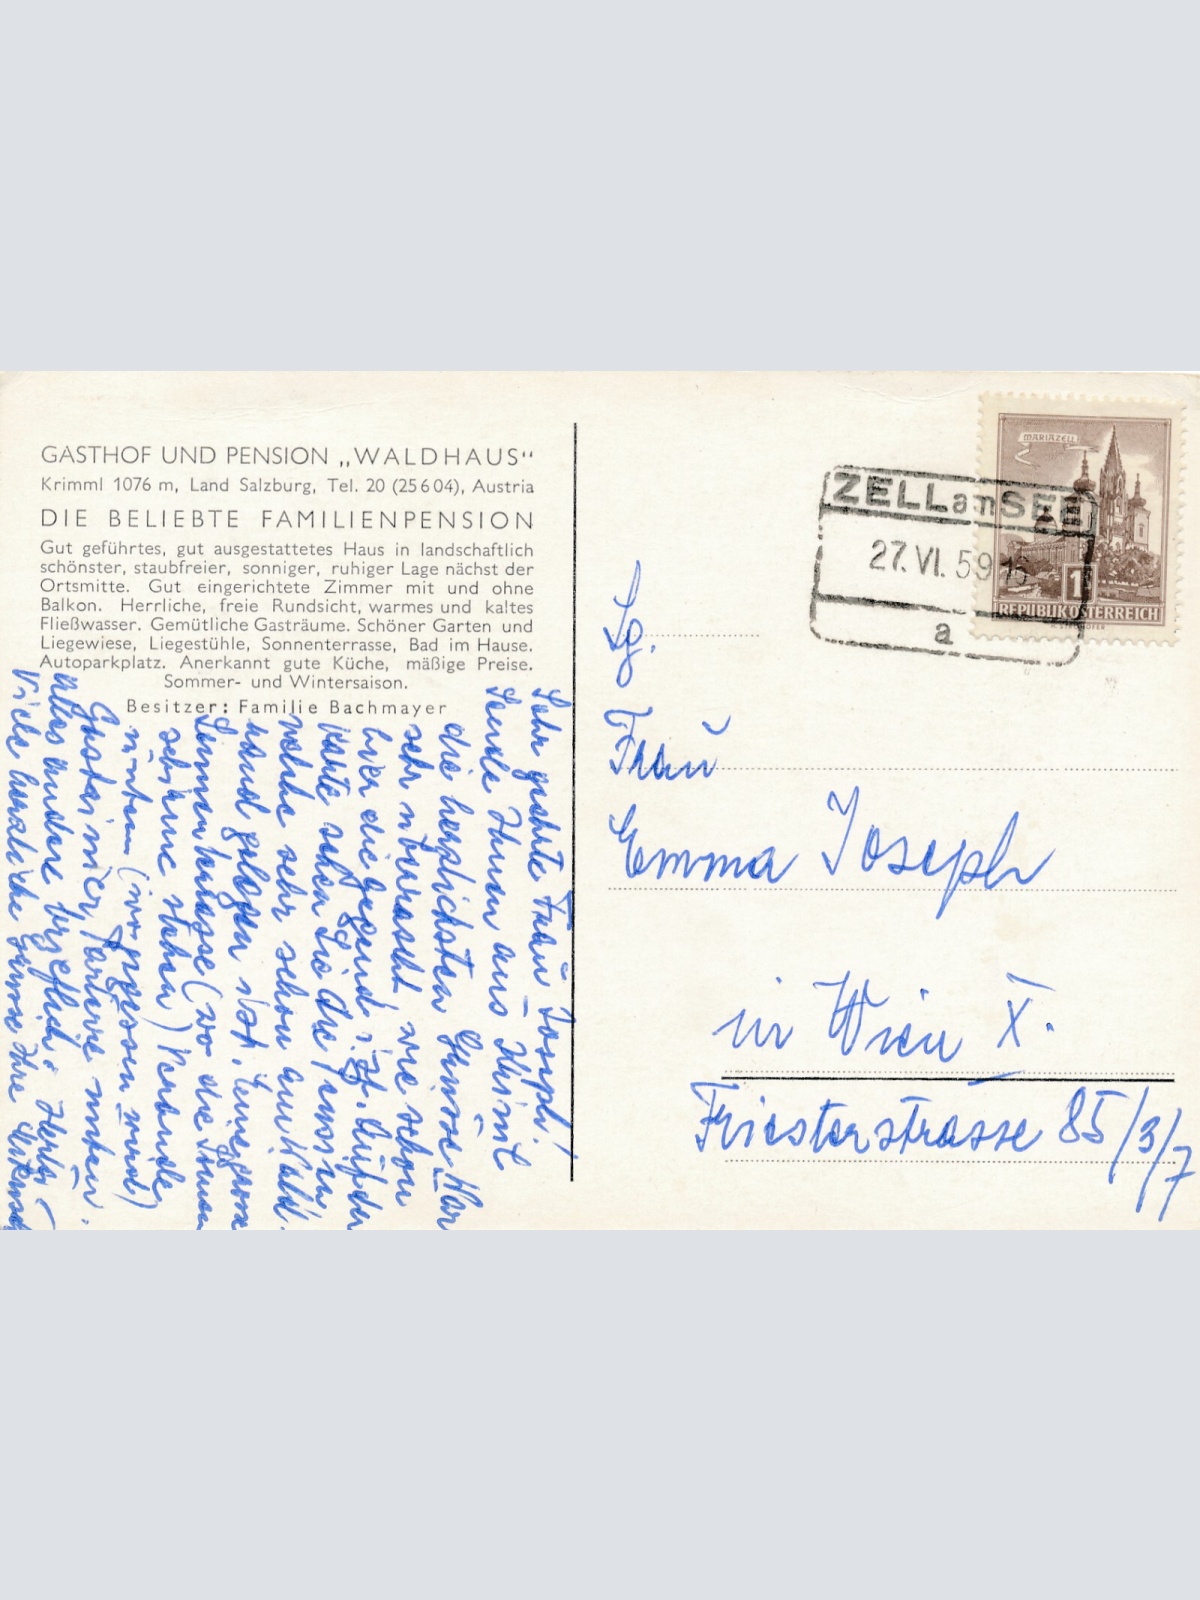 GASTHOF UND PENSION „WALDHAUS“
Krimml 1076 m, Land Salzburg, Tel. 20 (25604), Austria
DIE BELIEBTE FAMILIENPENSION
Gut geführtes, gut ausgestattetes Haus in landschaftlich
schönster, staubfreier, sonniger, ruhiger Lage nächst der
Ortsmitte. Gut eingerichtete Zimmer mit und ohne
Balkon. Herrliche, freie Rundsicht, warmes und kaltes
Fließwasser. Gemütliche Gasträume. Schöner Garten und
Liegewiese, Liegestühle, Sonnenterrasse, Bad im Hause.
Autoparkplatz. Anerkannt gute Küche, mäßige Preise.
Sommer- und Wintersaison.
Besitzer: Familie Bachmayer
Sehr geehrte Frau Joseph!
Sende Ihnen aus Kriml
die herzlichsten Grüsse War
sehr überrascht, wie schön
hier die gegend ist. Auf der
karte sehen Sie die pension,
welche sehr schön am Wald
rand gelegen ist. Eine grosse
Sonnenterasse (wo die
stehen) Veranda
unten (wo gegessen wird)
Gastzimmer Parterre unten.
alles andere
Viele herzliche Grüsse Ihre
MARIAZELL
1
REPUBLIK ÖSTERREICH
ZELL am SEE
27. VI. 59
a
Frau
Emma Joseph
in Wien X.
Triesterstrasse 85/3/7